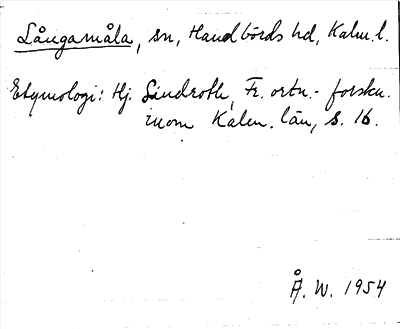 Långamåla, sn, Handbörds hd, Kalm. l.
Etymologi: Hj. Lindroth, Fr. ortn.- forskn.
inom Kalm. län, s. 16.
Å. W. 1954